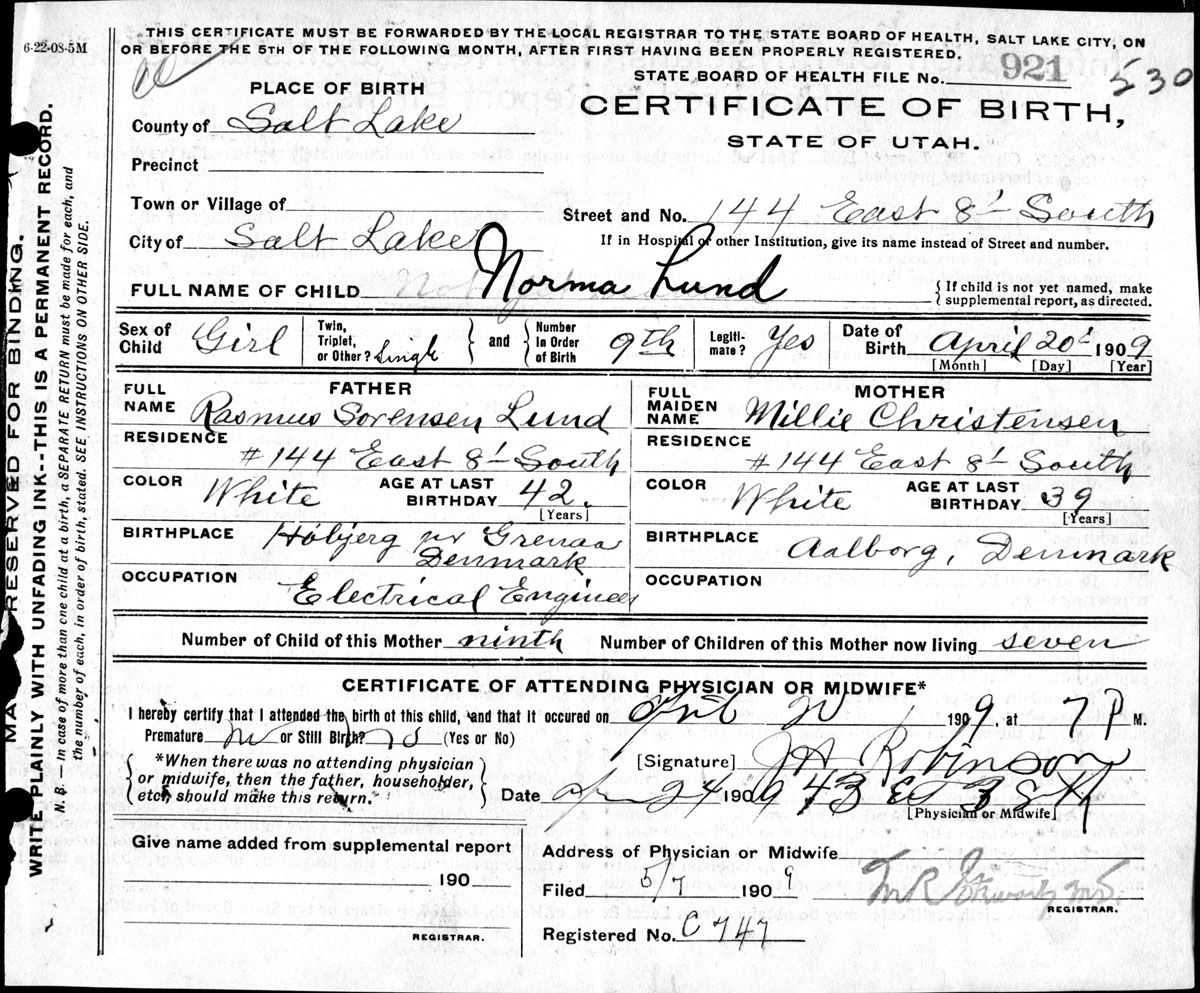 6-22-08-5M
THIS CERTIFICATE MUST BE FORWARDED BY THE LOCAL REGISTRAR TO THE STATE BOARD OF HEALTH, SALT LAKE CITY, ON
OR BEFORE THE 5TH OF THE FOLLOWING MONTH, AFTER FIRST HAVING BEEN PROPERLY REGISTERED.
STATE BOARD OF HEALTH FILE No. 921 530
PLACE OF BIRTH
CERTIFICATE OF BIRTH,
STATE OF UTAH.
County of Salt Lake
Precinct
Town or Village of
Street and No. 144 East 8' South
City of Salt Lake
If in Hospital or other Institution, give its name instead of Street and number.
FULL NAME OF CHILD Norma Lund
{ If child is not yet named, make
supplemental report, as directed.
Sex of Child Girl
Twin, Triplet, or Other? Single } and { Number In Order of Birth 9th
Legiti- mate? Yes
Date of Birth April 20 1909
[Month] [Day] [Year]
FATHER
FULL NAME Rasmus Sorensen Lund
RESIDENCE
#144 East 8' South
COLOR White AGE AT LAST BIRTHDAY 42.
[Years]
BIRTHPLACE Höbjerg pr Grenaa
Denmark
OCCUPATION
Electrical Engineer
MOTHER
FULL MAIDEN NAME Millie Christensen
RESIDENCE
#144 East 8' South
COLOR White AGE AT LAST BIRTHDAY 39
[Years]
BIRTHPLACE
Aalborg, Denmark
OCCUPATION
Number of Child of this Mother ninth Number of Children of this Mother now living seven
CERTIFICATE OF ATTENDING PHYSICIAN OR MIDWIFE*
I hereby certify that I attended the birth of this child, and that it occured on 20 1909, at 7 P M.
Premature no or Still Birth? no (Yes or No)
{ *When there was no attending physician
or midwife, then the father, householder,
etc, should make this return. }
[Signature] Robinson
Date 24 1909
[Physician or Midwife]
Give name added from supplemental report
190
REGISTRAR.
Address of Physician or Midwife
Filed 5/7 1909
REGISTRAR.
Registered No. C 747
MARGIN RESERVED FOR BINDING.
WRITE PLAINLY WITH UNFADING INK--THIS IS A PERMANENT RECORD.
N. B. — In case of more than one child at a birth, a SEPARATE RETURN must be made for each, and
the number of each, in order of birth, stated. SEE INSTRUCTIONS ON OTHER SIDE.